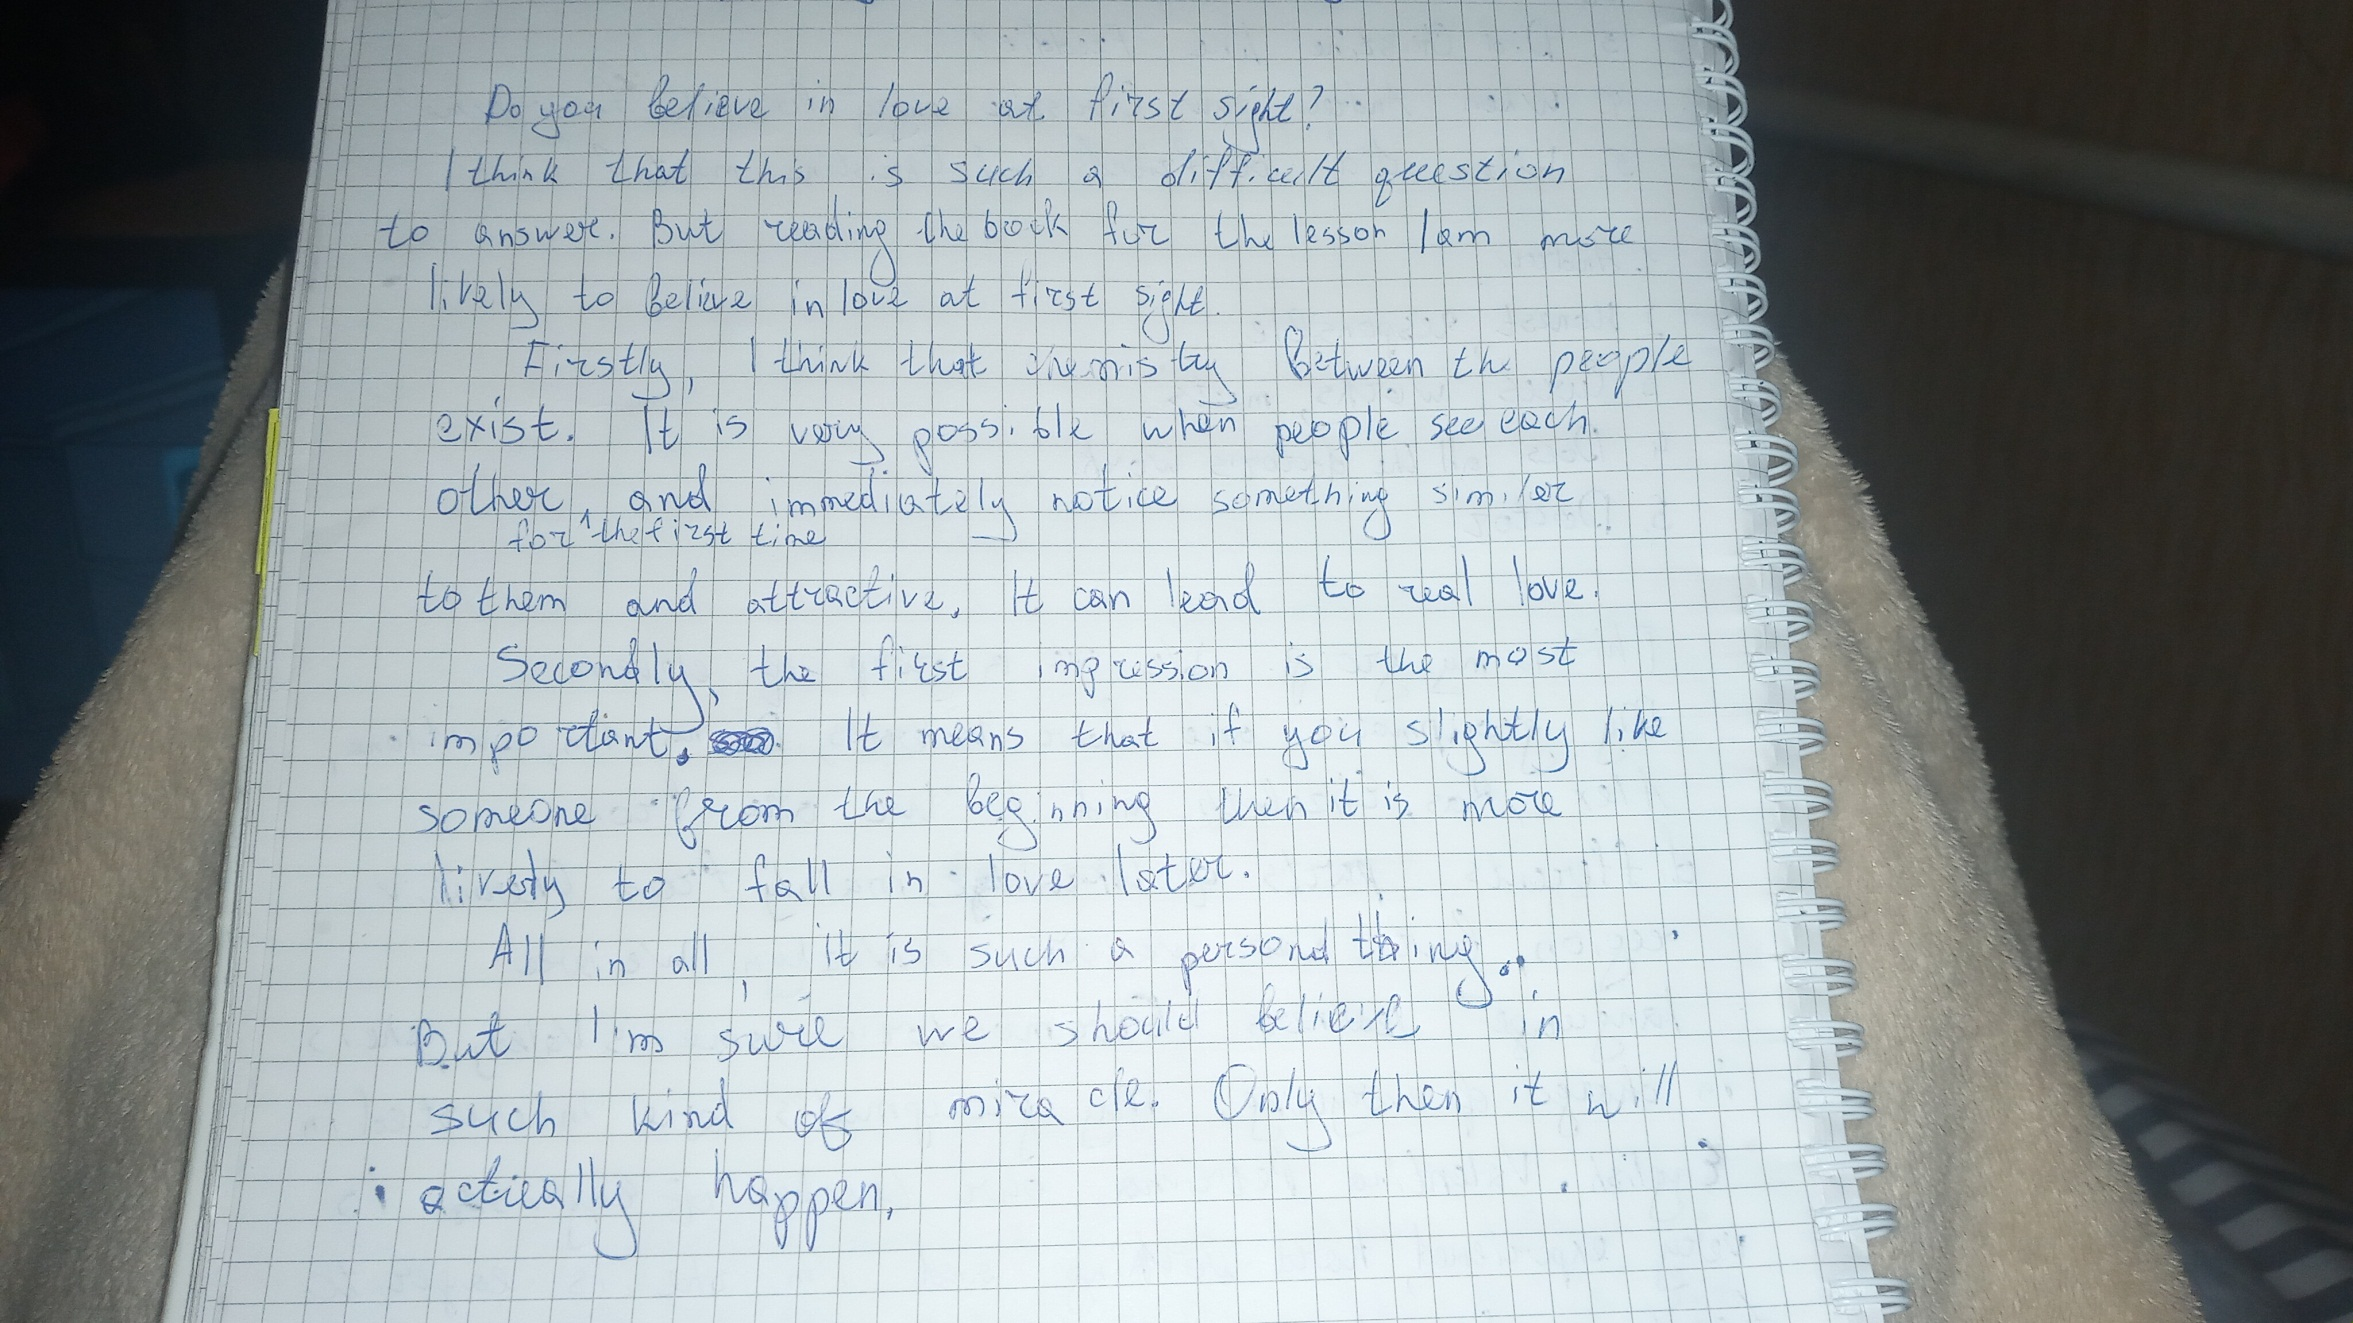 Do you believe in love at first sight?
I think that this is such a difficult question
to answer. But reading the book for the lesson I am more
lively to believe in love at first sight.
Firstly, I think that chemistry between the people
exist. It is very possible when people see each
other, and immediately notice something similar
for the first time
to them and attractive. It can lead to real love.
Secondly, the first impression is the most
important. It means that if you slightly like
someone from the beginning then it is more
lively to fall in love later.
All in all, it is such a personal thing.
But I'm sure we should believe in
such kind of miracle. Only then it will
actually happen.